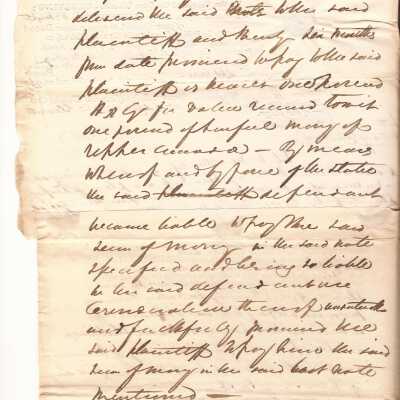 delivered the said note to the said
plaintiff and thereby six months
from date promised to pay to the said
plaintiff or bearer one pound
for value received to wit
one pound of lawful money of
upper canada — By means
whereof and by force of the statute
the said plaintiff defendant
became liable to pay the said
sum of money in the said note
specified and being so liable
he the said defendant
in consideration thereof undertook
and faithfully promised the
said plaintiff to pay him the said
sum of money in the said last note
mentioned —